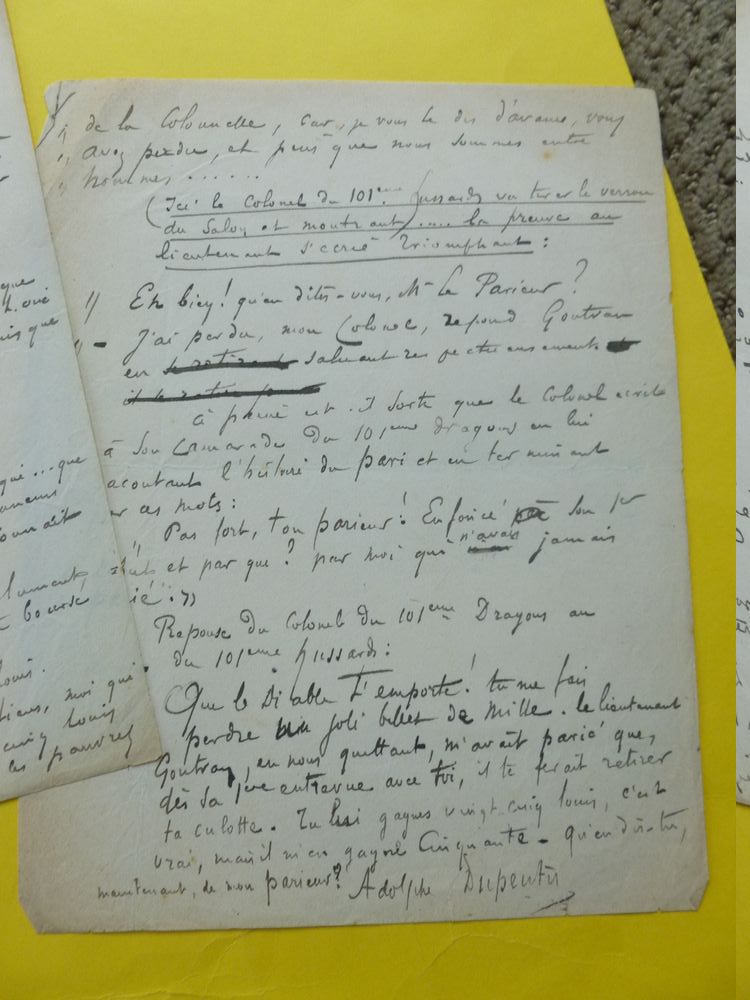 de la Colonelle, car, je vous le dis d'avance, vous
avez perdu, et puisque nous sommes entre
hommes ......
(Ici le Colonel du 101ème Hussards va tirer le verrou
du Salon et montrant) .... la preuve au
lieutenant s'écrie triomphant :
" Eh bien! qu'en dites-vous, Mr le Parieur ?
- J'ai perdu, mon Colonel, répond Gontran
en saluant respectueusement
à peine est-il sorti que le Colonel écrit
à son camarade du 101ème dragons en lui
racontant l'histoire du pari et en terminant
par ces mots :
" Pas fort, ton parieur! Enfoncé son
et par que? par moi qui n'avais jamais
rié. "
Reponse du Colonel du 101ème Dragons au
du 101ème Hussards :
Que le Diable t'emporte! tu me fais
perdre un joli billet de mille. le lieutenant
Gontran, en nous quittant, m'avait parié que,
dès sa 1ère entrevue avec toi, il te ferait retirer
ta culotte. Tu lui gagnes vingt cinq louis, c'est
vrai, mais il m'en gagne Cinquante - qu'en dis-tu,
maintenant, de mon parieur? Adolphe Dupentis
que
is que
qué ... que
ounait
bourse
louis.
tiens, moi qui
cinq louis
les pauvres